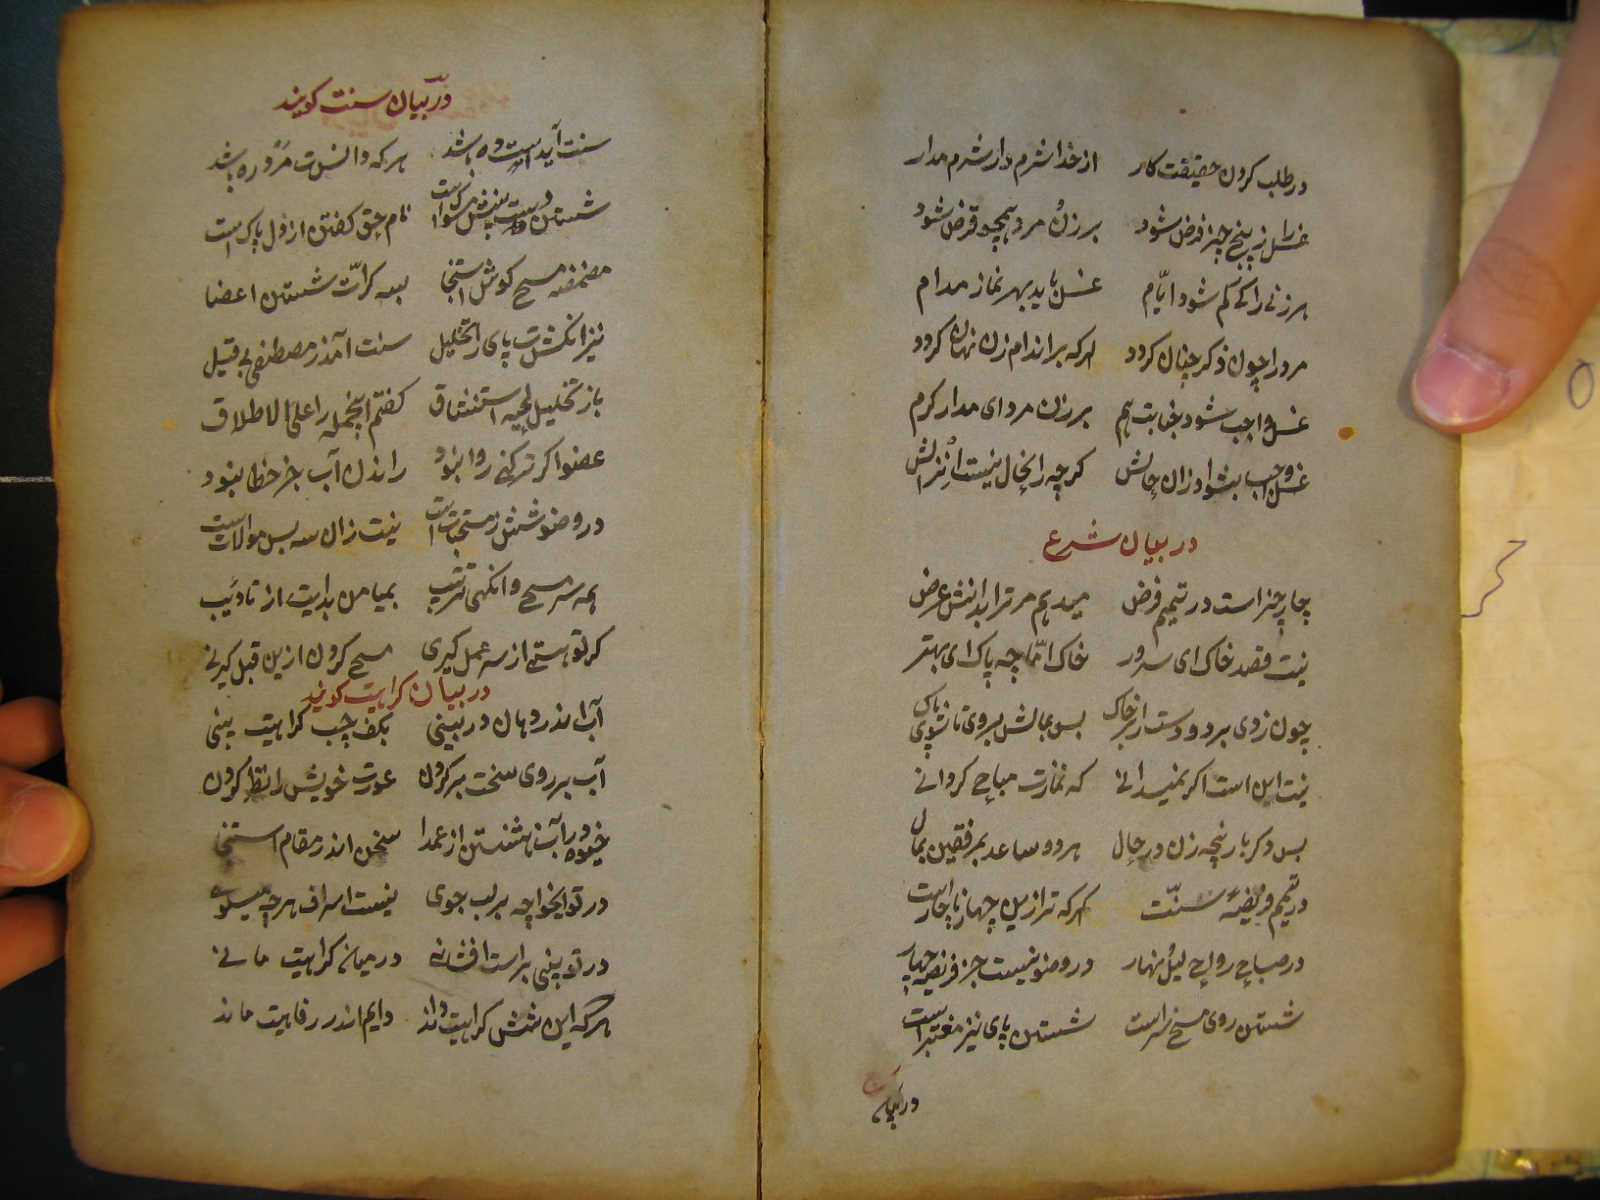 در طلب کردن حقیقت کار از خدا شرم دار شرم مدار
غسل را ز پنج چیز فرض شود بر زن و مرد همچو قرض شود
هر زنی را که کم شود ایام غسل باید بهر نماز مدام
مرد را چون ذکر چنان گردد که بر اندام زن نهان گردد
غسل واجب شود بجنابت هم بر زن مرد ای مدار کرم
غسل واجب بشود زان حالش گرچه زانحال نیست انزالش
در بیان شرع
چار چیز است در تیمم فرض میدهم مر ترا بدانش عرض
نیت قصد خاک ای سرور خاک اما چه پاک ای بهتر
چون زدی بر دو دست از بر خاک پس بمالش بروی تا شوی پاک
نیت این است اگر نمیدانی که نمازت مباح گردانی
پس دگر بار پنجه زن در حال هر دو ساعد بمرفقین بمال
در تیمم فریضه سنت که ترا زین چهار ناچار است
در صباح رواح لیل نهار در وضو نیست جز فریضه چهار
شستن روی مسح سر است شستن پای نیز معتبر است
در بیان
در بیان سنت گویند
سنت آید هر که دانست مرد ره باشد
شستن دست نام حق گفتن از دل پاک است
مضمضه مسح گوش استنجا بسه کرات شستن اعضا
نیز انگشت پای را تخلیل سنت آمد ز مصطفی بی قیل
باز تخلیل لحیه استنشاق گفتم اینجمله را علی الاطلاق
عضو اگر تر کنی روا نبود راندن آب جز خطا نبود
در وضو شش ز مستحبات است نیت زان سه پس موالات است
همه سر مسح وانگهی ترتیب بمیامن بدایت از تادیب
گر تو هستی از سه عمل گیری مسح گردن ازین قبل گیری
در بیان کراهیت گویند
آب اندر دهان در بینی بکف چپ کراهیت بینی
آب بر روی سخت بر کردن عورت خویش را نظر کردن
خیو در آب نهشتن از عمدا سخن اندر مقام استنجا
در تو ایخواجه بر لب جوی نیست اسراف هرچه میشوی
در تو بینی براست افشانی در میان کراهیت مانی
هر که این شش کراهیت داند دایم اندر رفاهیت ماند